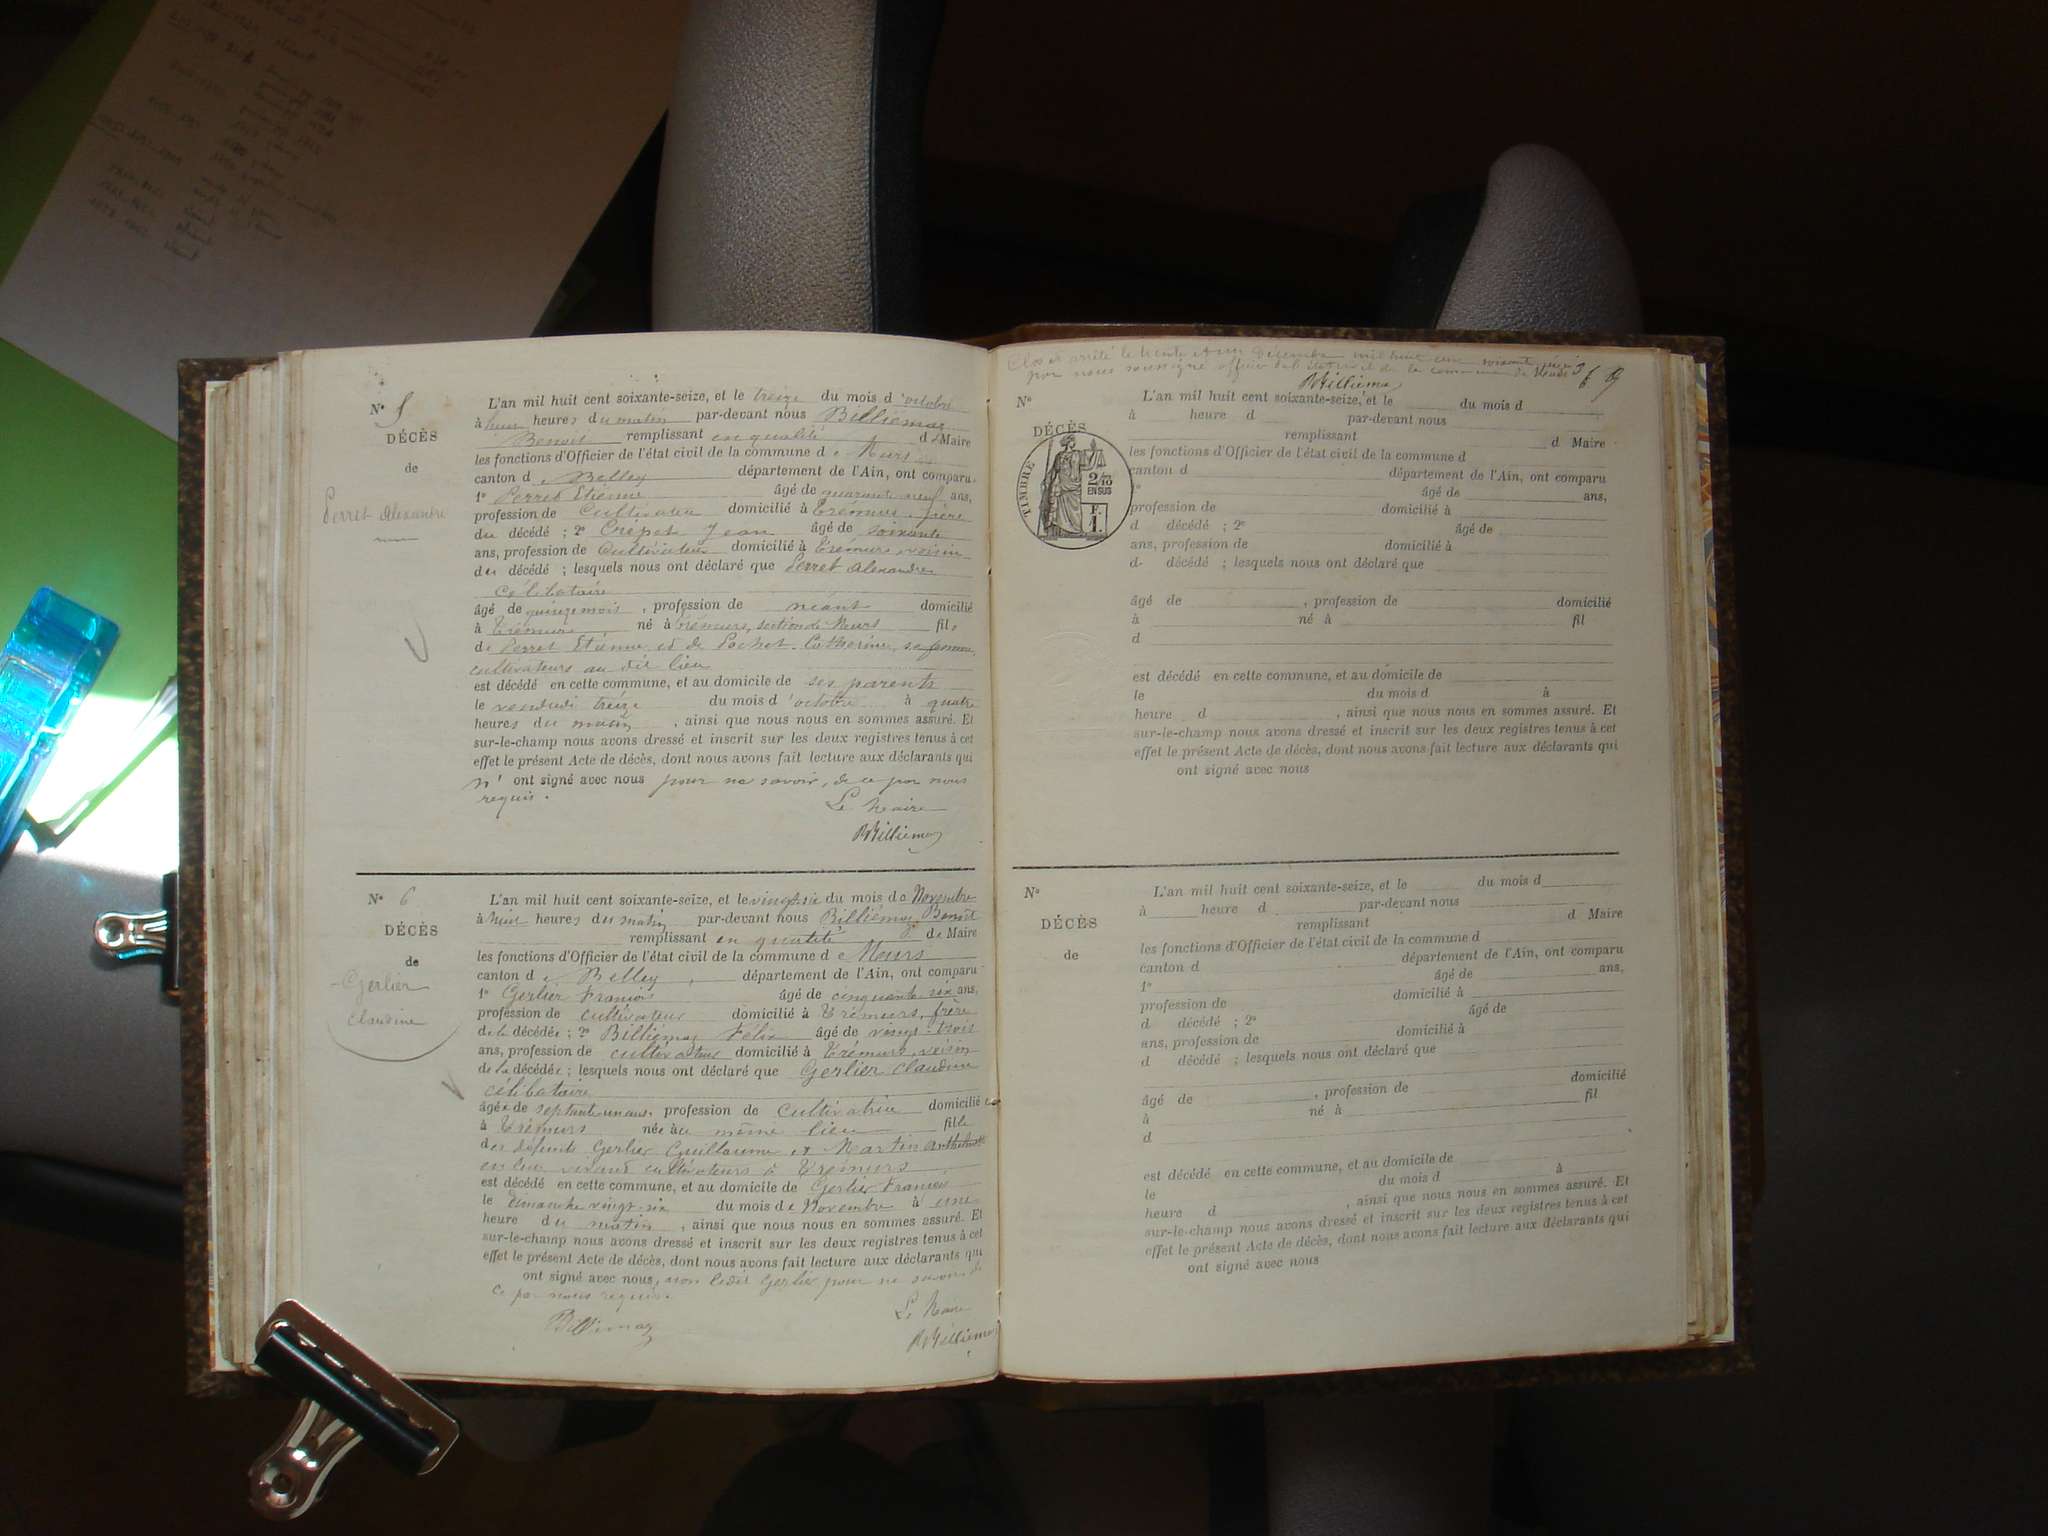 N° 5
DÉCÈS
de
Perret Alexandre
L'an mil huit cent soixante-seize, et le treize du mois d'octobre
à huit heures du matin par-devant nous Billiémaz
Benoît remplissant en qualité de Maire
les fonctions d'Officier de l'état civil de la commune de Meurs
canton de Belley département de l'Ain, ont comparu
1° Perret Etienne âgé de quarante neuf ans,
profession de cultivateur domicilié à Trémurs, père
du décédé ; 2° Crépet Jean âgé de soixante
ans, profession de Cultivateur domicilié à Trémurs, voisin
du décédé ; lesquels nous ont déclaré que Perret Alexandre
célibataire
âgé de quinze mois, profession de néant domicilié
à Trémurs né à Trémurs, section de Meurs fils
de Perret Etienne et de Pochet Catherine, sa femme,
cultivateurs au dit lieu
est décédé en cette commune, et au domicile de ses parents
le vendredi treize du mois d'octobre à quatre
heures du matin, ainsi que nous nous en sommes assuré. Et
sur-le-champ nous avons dressé et inscrit sur les deux registres tenus à cet
effet le présent Acte de décès, dont nous avons fait lecture aux déclarants qui
n'ont signé avec nous pour ne savoir, de ce par nous
requis.
Le Maire
BBilliémaz
N° 6
DÉCÈS
de
Gerlier
Claudine
L'an mil huit cent soixante-seize, et le vingt-six du mois de Novembre
à huit heures du matin par-devant nous Billiémaz Benoît
remplissant en qualité de Maire
les fonctions d'Officier de l'état civil de la commune de Meurs
canton de Belley, département de l'Ain, ont comparu
1° Gerlier François âgé de cinquante six ans,
profession de cultivateur domicilié à Trémurs, frère
de la décédée ; 2° Billiémaz Félix âgé de vingt-trois
ans, profession de cultivateur domicilié à Trémurs, voisin
de la décédée ; lesquels nous ont déclaré que Gerlier Claudine
célibataire
âgée de septante un ans, profession de cultivatrice domicilié
à Trémurs née au même lieu fille
des défunts Gerlier Guillaume et Martin
en leur vivant cultivateurs à Trémurs
est décédé en cette commune, et au domicile de Gerlier François
le dimanche vingt-six du mois de Novembre à une
heure du matin, ainsi que nous nous en sommes assuré. Et
sur-le-champ nous avons dressé et inscrit sur les deux registres tenus à cet
effet le présent Acte de décès, dont nous avons fait lecture aux déclarants qui
ont signé avec nous, non ledit Gerlier pour ne savoir de
ce par nous requis.
Billiémaz
Le Maire
BBilliémaz
Clos et arrêté le trente et un Décembre mil huit cent soixante seize
par nous soussigné officier de l'état civil de la commune de Meurs
BBilliémaz
N°
DÉCÈS
TIMBRE
2/10
EN SUS
F.
1.
L'an mil huit cent soixante-seize, et le du mois d
à heure d par-devant nous
remplissant d Maire
les fonctions d'Officier de l'état civil de la commune d
canton d département de l'Ain, ont comparu
1° âgé de ans,
profession de domicilié à
d décédé ; 2° âgé de
ans, profession de domicilié à
d décédé ; lesquels nous ont déclaré que
âgé de , profession de domicilié
à né à fil
d
est décédé en cette commune, et au domicile de
le du mois d à
heure d , ainsi que nous nous en sommes assuré. Et
sur-le-champ nous avons dressé et inscrit sur les deux registres tenus à cet
effet le présent Acte de décès, dont nous avons fait lecture aux déclarants qui
ont signé avec nous
N°
DÉCÈS
de
L'an mil huit cent soixante-seize, et le du mois d
à heure d par-devant nous
remplissant d Maire
les fonctions d'Officier de l'état civil de la commune d
canton d département de l'Ain, ont comparu
1° âgé de ans,
profession de domicilié à
d décédé ; 2° âgé de
ans, profession de domicilié à
d décédé ; lesquels nous ont déclaré que
âgé de , profession de domicilié
à né à fil
d
est décédé en cette commune, et au domicile de
le du mois d à
heure d , ainsi que nous nous en sommes assuré. Et
sur-le-champ nous avons dressé et inscrit sur les deux registres tenus à cet
effet le présent Acte de décès, dont nous avons fait lecture aux déclarants qui
ont signé avec nous